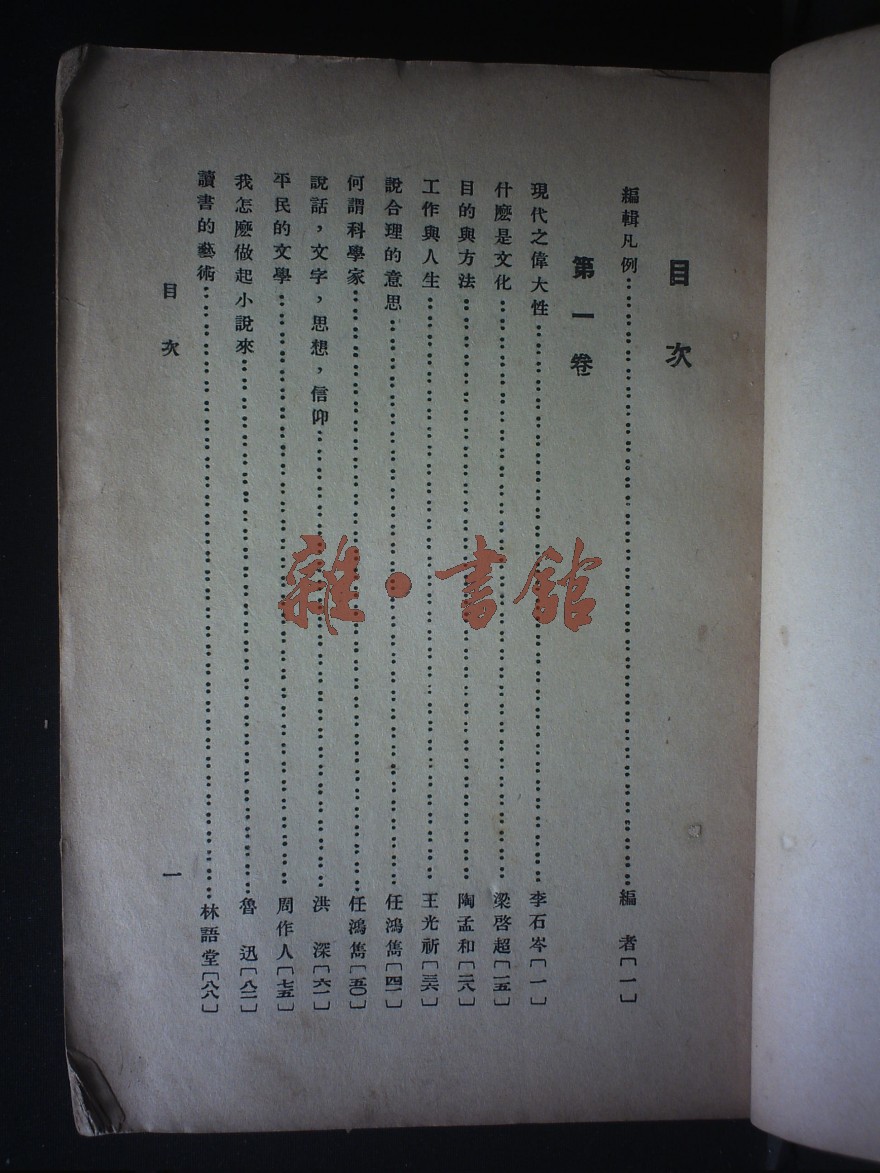 目次
編輯凡例⋯⋯⋯⋯編 者〔一〕
第一卷
現代之偉大性⋯⋯⋯⋯李石岑〔一〕
什麼是文化⋯⋯⋯⋯梁啓超〔一五〕
目的與方法⋯⋯⋯⋯陶孟和〔二八〕
工作與人生⋯⋯⋯⋯王光祈〔三六〕
說合理的意思⋯⋯⋯⋯任鴻雋〔四一〕
何謂科學家⋯⋯⋯⋯任鴻雋〔五〇〕
說話，文字，思想，信仰⋯⋯⋯⋯洪 深〔六一〕
平民的文學⋯⋯⋯⋯周作人〔七五〕
我怎麼做起小說來⋯⋯⋯⋯魯 迅〔八二〕
讀書的藝術⋯⋯⋯⋯林語堂〔八八〕
目次 一
雜·書館